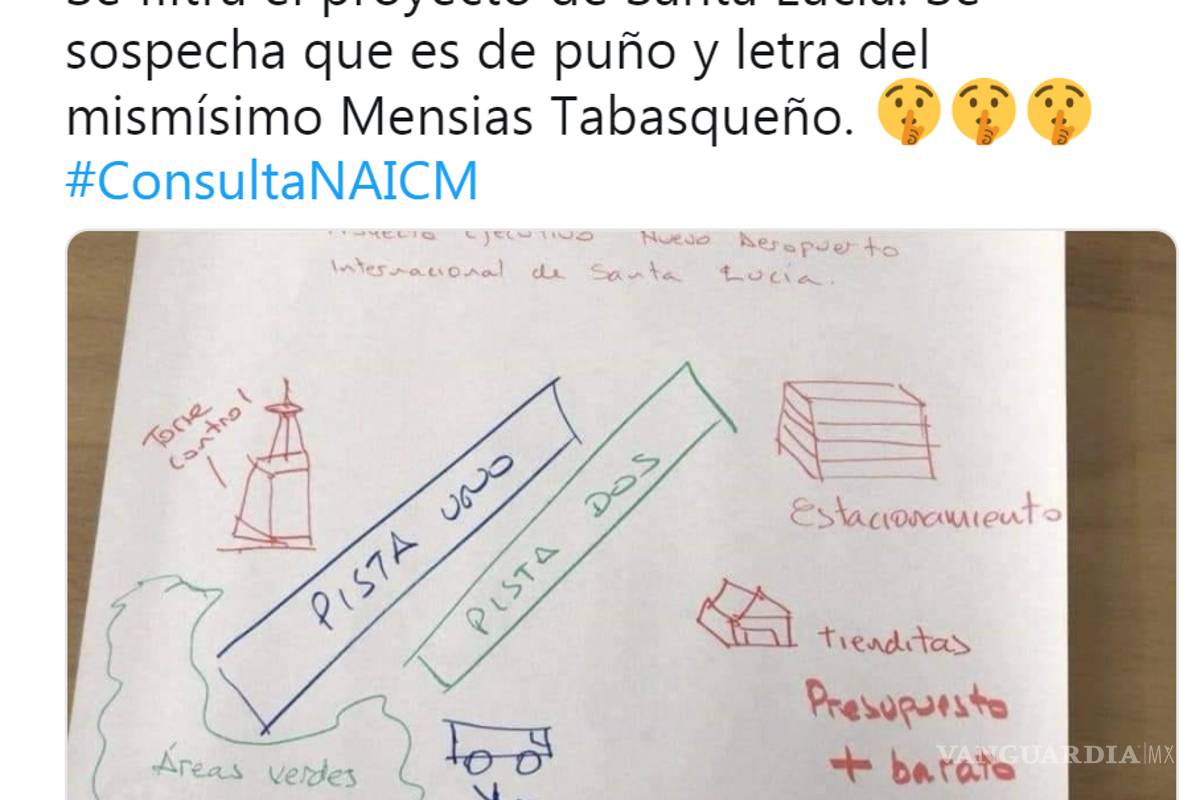 Se filtra el proyecto de Santa Lucía. Se
sospecha que es de puño y letra del
mismísimo Mensias Tabasqueño. 🤫🤫🤫
#ConsultaNAICM
Proyecto Ejecutivo Nuevo Aeropuerto
Internacional de Santa Lucía.
Torre
control
PISTA UNO
PISTA DOS
Estacionamiento
tienditas
Presupuesto
+ barato
Áreas verdes
VANGUARDIA|MX